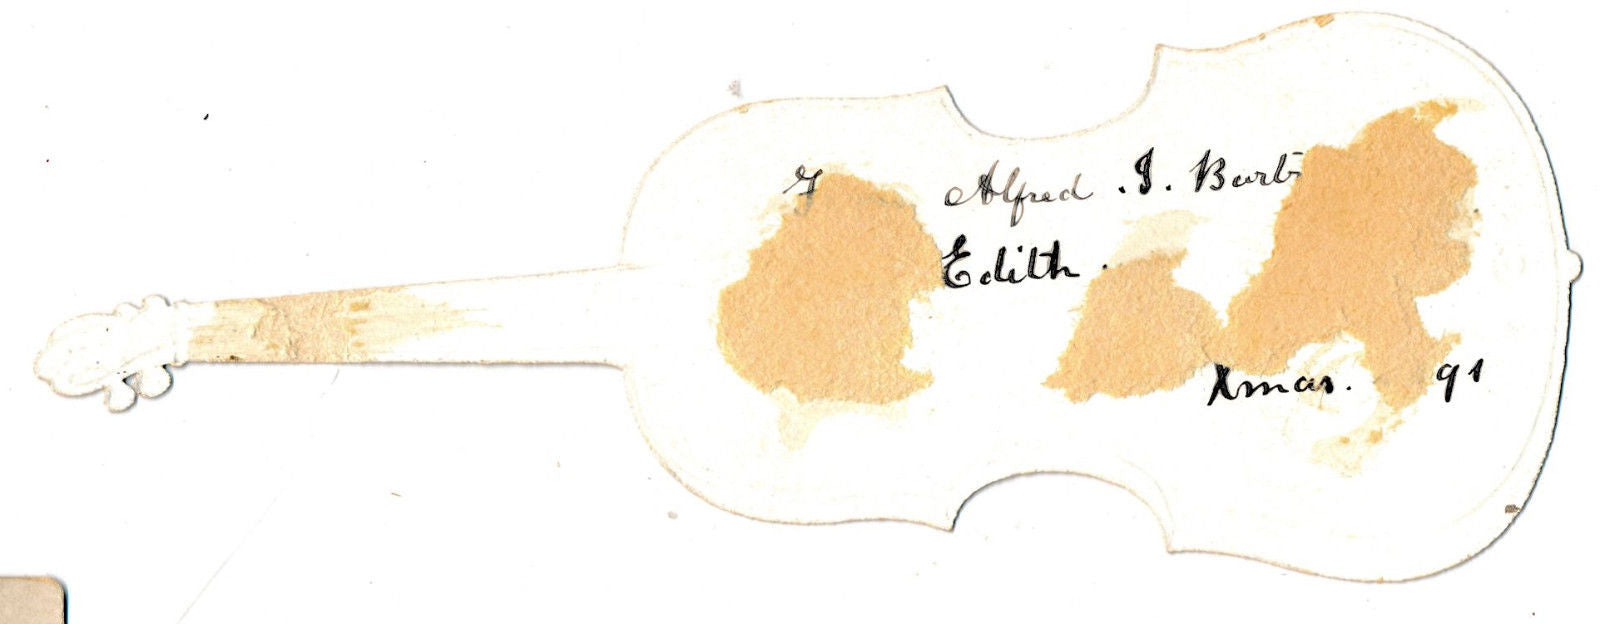 Alfred . I. Burt
Edith .
Xmas. 91